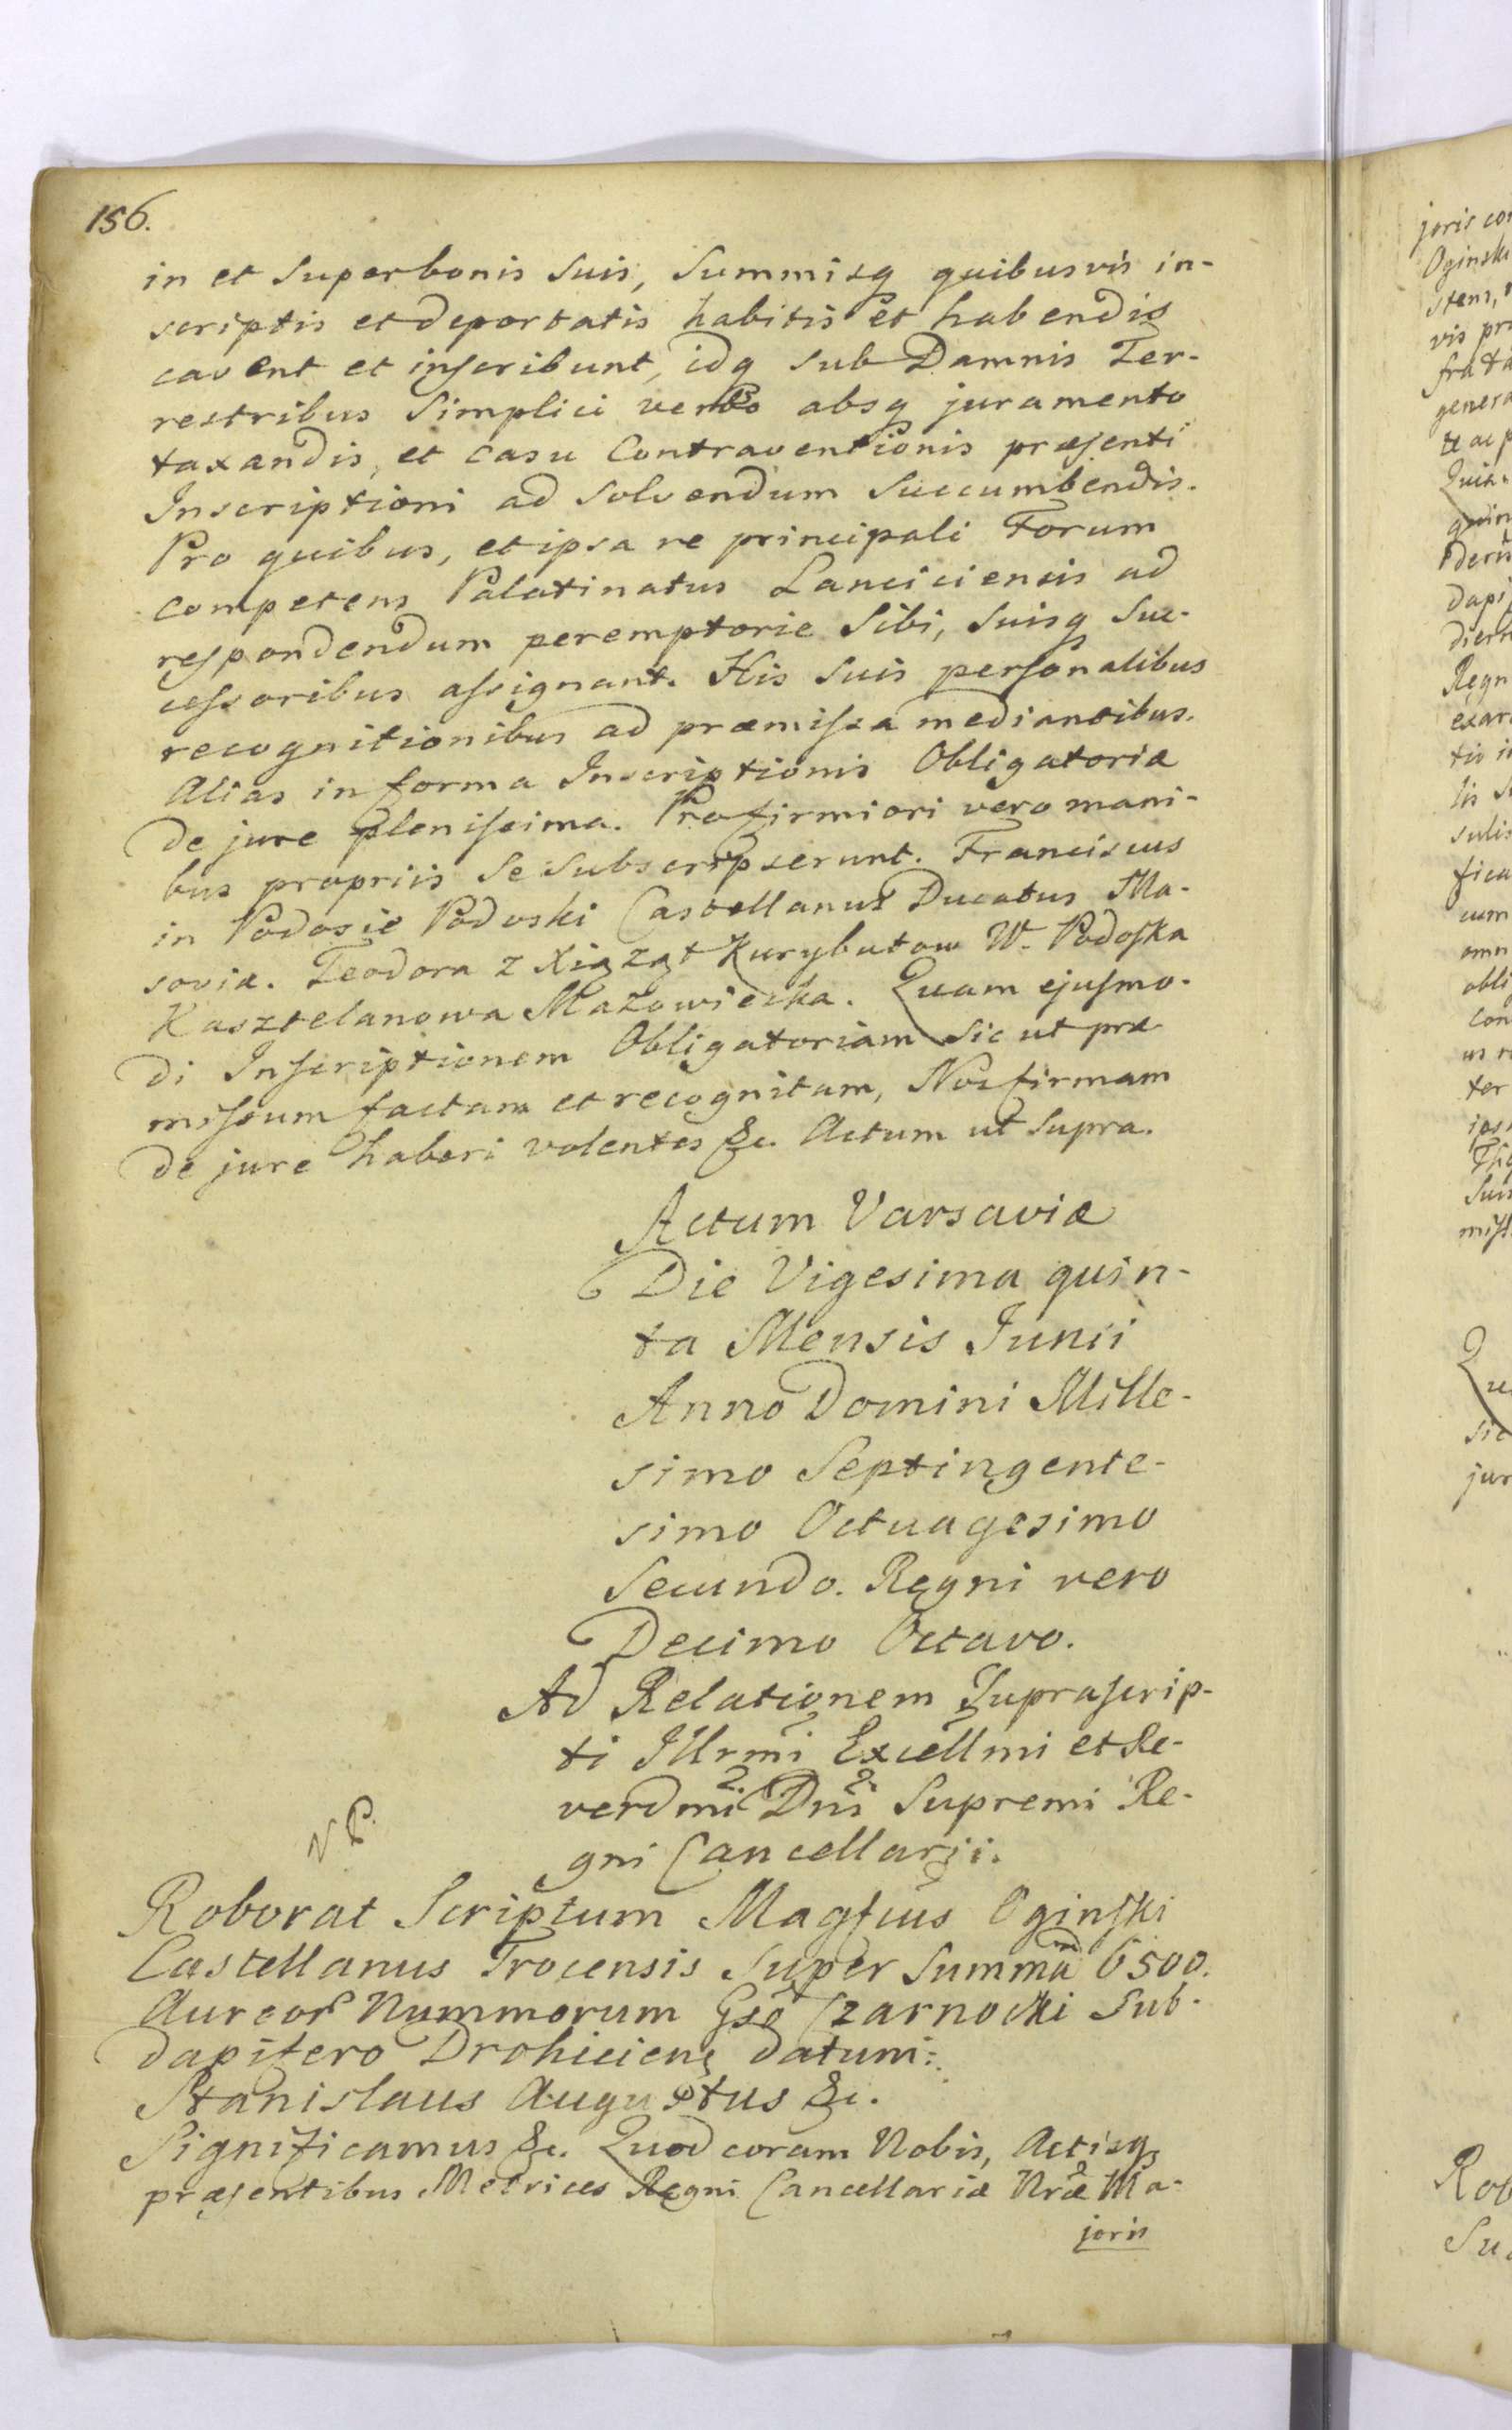 156.
in et Super bonis Suis, Summisq quibusvis in-
scriptis et deportatis habitis et habendis
cavent et inscribunt, idq sub Damnis Ter-
restribus Simplici verbo absq juramento
taxandis, et casu Contraventionis præsenti
Inscriptioni ad Solvendum Succumbendis.
Pro quibus, et ipsa re principali Forum
competens Palatinatus Lanciciensis ad
respondendum peremptorie Sibi, Suisq Suc-
cessoribus assignant. His Suis personalibus
recognitionibus ad præmissa mediantibus.
Alias in forma Inscriptionis Obligatoriæ
de jure plenissima. Pro firmiori vero mani-
bus propriis Se Subscripserunt. Franciscus
in Podosie Podoski Castellanus Ducatus Ma-
soviæ. Teodora z Xiąząt Kurybutow W. Podoska
Kasztelanowa Mazowiecka. Quam ejusmo-
di Inscriptionem Obligatoriam Sic ut præ
missum factam et recognitam, Nos firmam
de jure haberi volentes &c. Actum ut Supra.
Actum Varsaviæ
Die Vigesima quin-
ta Mensis Junii
Anno Domini Mille-
simo Septingente-
simo Octuagesimo
Secundo. Regni vero
Decimo Octavo.
Ad Relationem Suprascrip-
ti Illrmi Excellmi et Re-
verdmi Dni Supremi Re-
gni Cancellarii.
Roborat Scriptum Magfcus Oginski
Castellanus Trocensis Super Summam 6500.
Aureor Nummorum Gso Czarnocki Sub-
dapifero Drohiciens datum.
Stanislaus Augustus &c.
Significamus &c. Quod coram Nobis, Actisq
præsentibus Metrices Regni Cancellariæ Nræ Ma-
joris
joris
Oginski
stens,
vis
genera
Regn
sulis
cum
omn
obli
con
ter